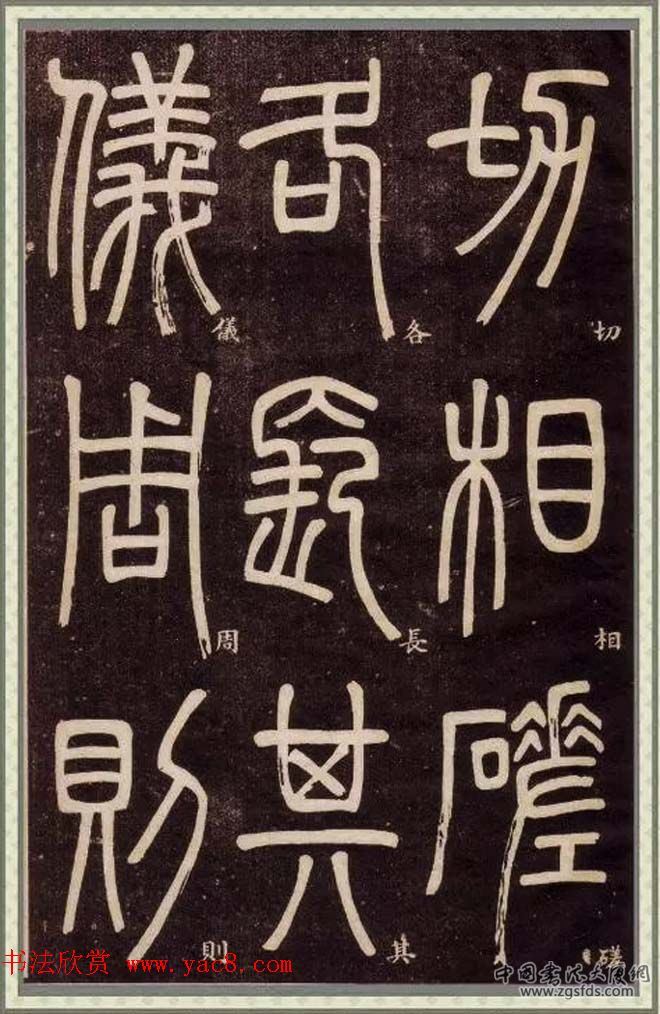 切相磋
切相磋
各長其
各長其
儀周則
儀周則
书法欣赏 www.yac8.com
中国书法大厦网
www.zgsfds.com